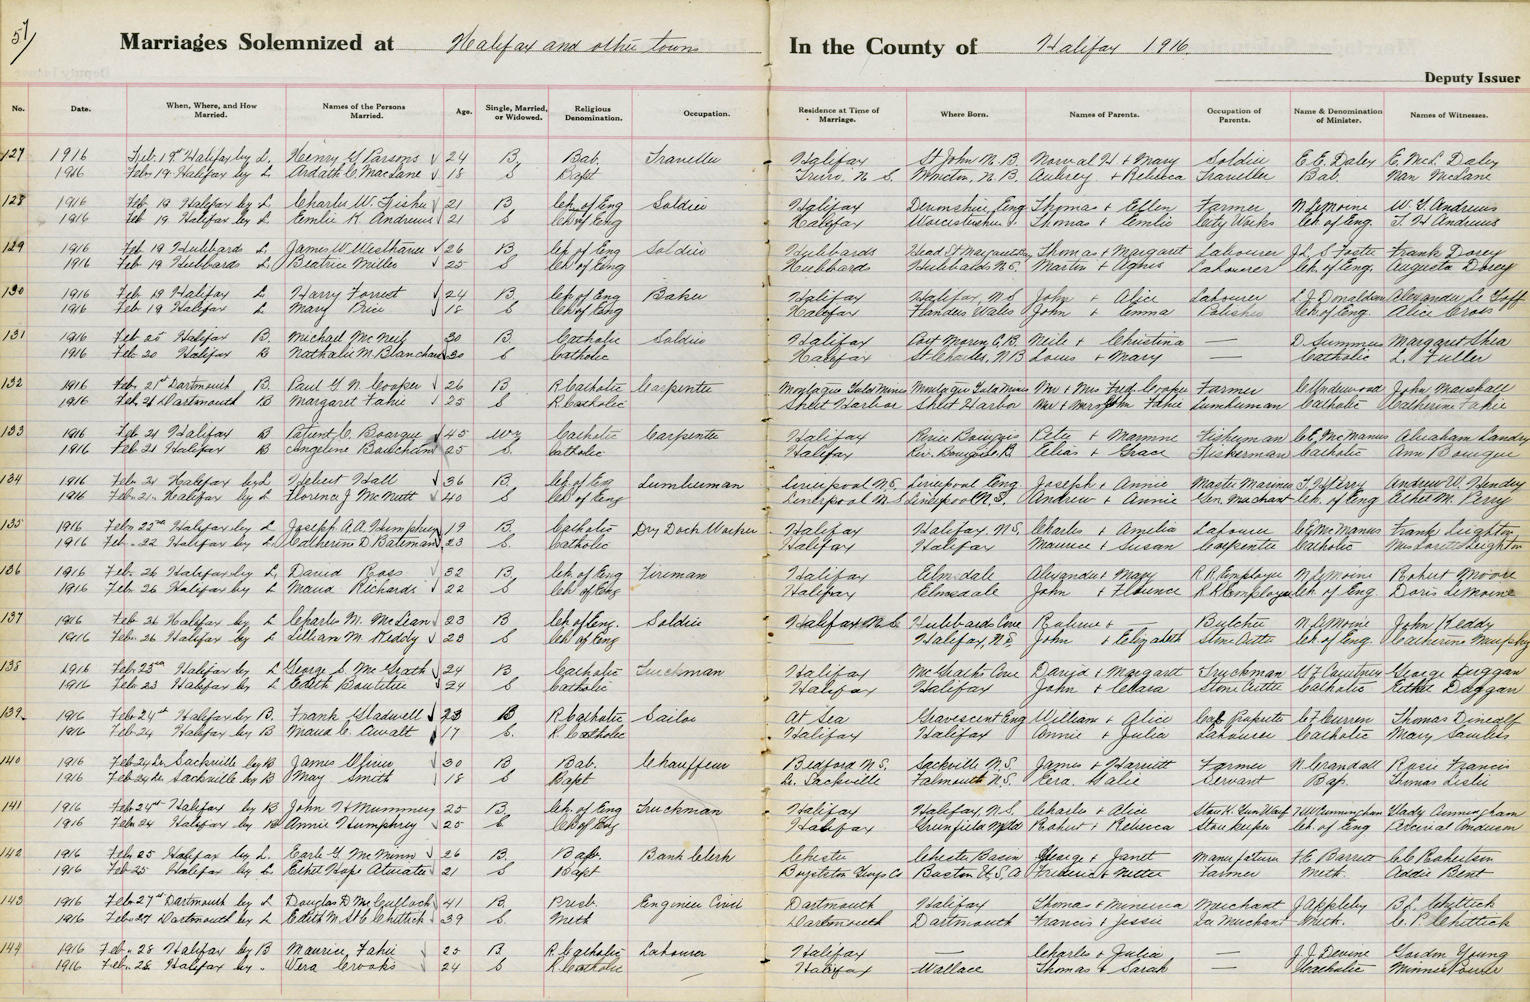 57
Marriages Solemnized at Halifax and other towns In the County of Halifax 1916.
Deputy Issuer
No. Date. When, Where, and How Married. Names of the Persons Married. Age. Single, Married, or Widowed. Religious Denomination. Occupation. Residence at Time of Marriage. Where Born. Names of Parents. Occupation of Parents. Name & Denomination of Minister. Names of Witnesses.
127 1916 Feb. 19th Halifax by L. Henry G Parsons 24 B Bab. Traveller Halifax St John N. B. Norval H + Mary Soldier E. E. Daley E. McL. Daley
1916 Feb 19 Halifax by L Ardath C. MacLane 18 S Bapt Truro, N. S. Moncton, N. B. Aubrey + Rebecca Traveller Bab. Nan McLane
128 1916 Feb 19 Halifax by L Charles W. Fisher 21 B Ch. of Eng Soldier Halifax Devonshire, Eng Thomas + Ellen Farmer N LeMoine W. G. Andrews
1916 Feb 19 Halifax by L Emlie K Andrews 21 S Ch of Eng Halifax Worcestershire Thomas + Emlie City Works Ch. of Eng. T. H Andrews
129 1916 Feb 19 Hubbards L. James W. Westhaver 26 B Ch. of Eng Soldier Hubbards Head St Margarets Bay Thomas + Margaret Labourer J. S Foster Frank Dorey
1916 Feb 19 Hubbards L Beatrice Miller 25 S Ch of Eng Hubbards Hubbards N.S. Martin + Agnes Labourer Ch. of Eng. Augusta Dorey
130 1916 Feb 19 Halifax L Harry Forrest 24 B Ch. of Eng Baker Halifax Halifax, N S John + Alice Labourer L J Donaldson Alexander Le Goff
1916 Feb 19 Halifax L Mary Price 18 S Ch of Eng Halifax Flanders Wales John + Emma Ch. of Eng. Alice Cross
131 1916 Feb 20 Halifax B. Michael McNeil 30 B Catholic Soldier Halifax Port Morien C. B. Neile + Christina — D. Summers Margaret Shea
1916 Feb 20 Halifax B Nathalie M. Blanchard 30 S Catholic Halifax St Charles, N B Louis + Mary — Catholic L. Fuller
132 1916 Feb 21st Dartmouth B. Paul G. N. Cooper 26 B R Catholic Carpenter Montague Gold Mines Montague Gold Mines Mr + Mrs Fred. Cooper Farmer C Underwood John Marshall
1916 Feb 21 Dartmouth B Margaret Fahie 25 S R Catholic Sheet Harbor Sheet Harbor Mr + Mrs John Fahie Lumberman Catholic Catherine Fahie
133 1916 Feb 21 Halifax B Patient C. Bourque 45 Wr Catholic Carpenter Halifax River Bourgois Peter + Fisherman C. E. McManus Abraham Landry
1916 Feb 21 Halifax B Angeline 25 S. Catholic Halifax Riv. Bourgois C. B. Elias + Grace Fisherman Catholic Ann Bourque
134 1916 Feb. 21 Halifax by L Hebert Hall 36 B Ch. of Eng Lumberman Liverpool N.S. Liverpool Eng Joseph + Annie Master Mariner T. H Perry Andrew W. Hendry
1916 Feb. 21. Halifax by L Florence J McNutt 40 S Ch. of Eng Liverpool N. S Liverpool N. S. Andrew + Annie Gen. Merchant Ch. of Eng Ethel M. Perry
135 1916 Feb. 22nd Halifax by L Joseph A. A. Humphrey 19 B. Catholic Dry Dock Worker Halifax Halifax. N. S. Charles + Amelia Labourer C. E. McManus Frank Leighton
1916 Feb. 22 Halifax by L Catherine D. Bateman 23 S. Catholic Halifax Halifax Maurice + Susan Carpenter Catholic Mrs Loretta Leighton
136 1916 Feb. 26 Halifax by L. David Ross 32 B. Ch. of Eng Fireman Halifax Elmsdale Alexander + Mary R R Employee N. LeMoine Robert Moore
1916 Feb. 26 Halifax by L Maud Richards 22 S Ch of Eng Halifax Elmsdale John + Florence R R Employee Ch. of Eng. Doris LeMoine
137 1916 Feb 26 Halifax by L Charles M. McLean 23 B Ch. of Eng. Soldier Halifax N. S Hubbards Cove + — Butcher N. LeMoine John Reddy
1916 Feb. 26 Halifax by L Lillian M. Reddy 23 S Ch of Eng Halifax, N.S. John + Elizabeth Stone Cutter Ch. of Eng. Catherine Murphy
138 1916 Feb. 23rd Halifax by L George S. McGrath 24 B Catholic Truckman Halifax McGraths Cove David + Margaret Truckman G F Courtney George Duggan
1916 Feb 23 Halifax by L Edith Boutilier 24 S Catholic Halifax Halifax John + Clara Stone Cutter Catholic Ethel Duggan
139 1916 Feb. 24th Halifax by B. Frank Gladwell 23 B R Catholic Sailor At Sea Gravescent Eng William + Alice C. F. Curren Thomas
1916 Feb. 24 Halifax by B Maud C. Awalt 17 S. R Catholic Halifax Halifax Annie + Julia Labourer Catholic Mary
140 1916 Feb. 24 Lr. Sackville by B James Glinn 30 B Bab. Chauffeur Bedford N. S. Sackville N. S. James + Harriett Farmer N. Crandall Rosie Francis
1916 Feb. 24 Lr. Sackville by B May Smith 18 S Bapt Lr. Sackville Falmouth N. S. Ezra. Galie Servant Bap. Thomas Leslie
141 1916 Feb. 24th Halifax by B John H Mummery 25 B. Ch. of Eng Truckman Halifax Halifax, N. S. Charles + Alice Cunningham Glady Cunningham
1916 Feb. 24 Halifax by B Annie Humphrey 25 S Ch of Eng Halifax Greenfield Robert + Rebecca Store keeper Ch. of Eng Anderson
142 1916 Feb. 25 Halifax by L. Earle G. McMinn 26 B. Bap. Bank Clerk Chester Chester Basin George + Janet Manufacturer F. E. Barrett C C Robertson
1916 Feb 25 Halifax by L Ethel Hope Atwater 21 S Bapt Boylston Guys Co Boston U. S. A Frederick + Nettie Farmer Meth. Addie Bent
143 1916 Feb. 27th Dartmouth by L Douglas D. McCulloch 41 B Presb. Engineer Civil Dartmouth Halifax Thomas + Minerva Merchant J Appleby B. L. Chittick
1916 Feb. 27 Dartmouth by L Edith M. St C. Chittick 39 S Meth Dartmouth Dartmouth Francis + Jessie Ice Merchant Meth. C. P. Chittick
144 1916 Feb. 28 Halifax by B Maurice Fahie 25 B. R Catholic Labourer Halifax — Charles + Julia — J. J. Devine Gordon Young
1916 Feb. 28 Halifax by " Vera Crooks 24 S R Catholic Halifax Wallace Thomas + Sarah — Catholic Minnie Power